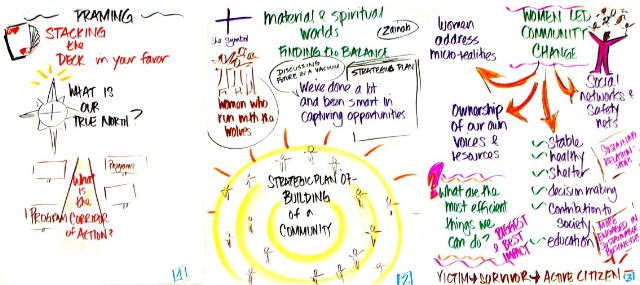 FRAMING
STACKING
the
DECK in your favor
WHAT IS
OUR
TRUE NORTH?
Programs
What
is
the
PROGRAM CORRIDOR
of ACTION?
1
the symbol
material & spiritual
worlds
Zainah
FINDING the BALANCE
Women who
run with the
wolves
DISCUSSING
FUTURE IN A VACUUM
STRATEGIC PLAN
We've done a lot
and been smart in
capturing opportunities
STRATEGIC PLAN OF
BUILDING
OF A
COMMUNITY
2
Women
address
micro-realities
WOMEN LED
COMMUNITY
CHANGE
Social
networks &
safety
nets
Ownership
of our own
voices &
resources
Stable
healthy
Shelter
decision making
Contribution to
society
education
What are the
most efficient
things we
can do?
BIGGEST
& BEST
IMPACT
MORE
ENGAGED
SUSTAINABLE
BUSINESSES
VICTIM → SURVIVOR → ACTIVE CITIZEN
3